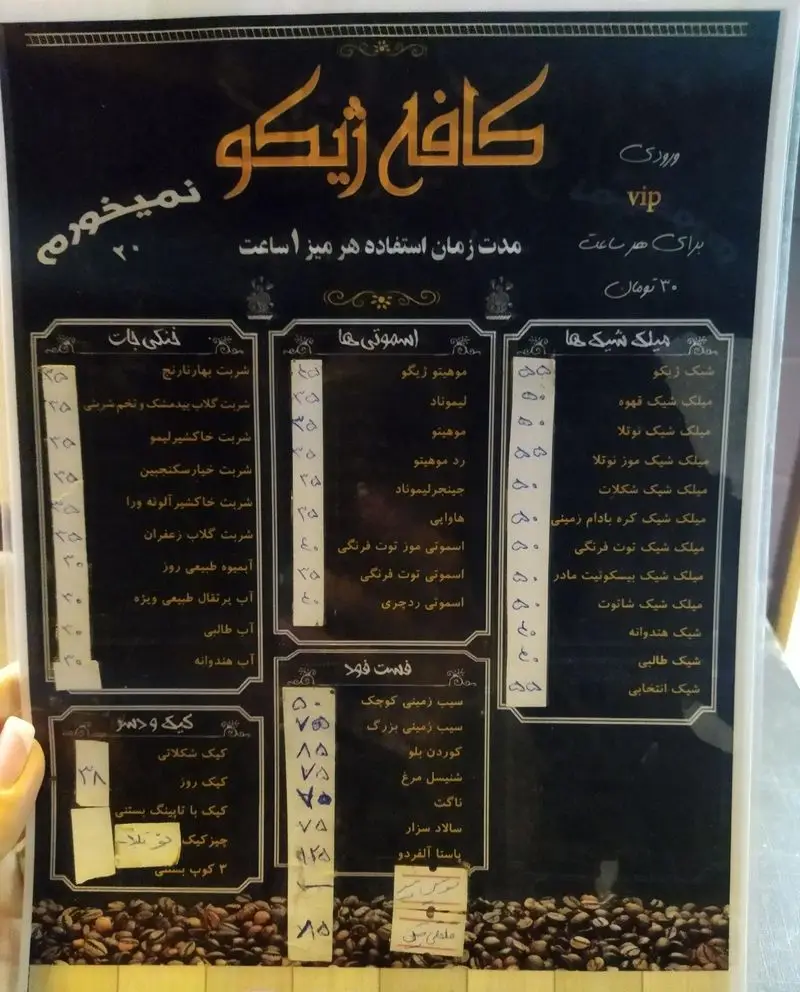 کافه ژیکو
ورودی
vip
برای هر ساعت
۳۰ تومان
نمیخورم
۲۰
مدت زمان استفاده هر میز ۱ ساعت
میلک شیک ها
شیک ژیکو ۵۵
میلک شیک قهوه ۵۰
میلک شیک نوتلا ۵۰
میلک شیک موز نوتلا ۵۵
میلک شیک شکلات ۵۰
میلک شیک کره بادام زمینی ۵۰
میلک شیک توت فرنگی ۵۰
میلک شیک بیسکوئیت مادر ۵۰
میلک شیک شاتوت ۵۰
شیک هندوانه ۴۰
شیک طالبی ۴۰
شیک انتخابی ۵۵
اسموتی ها
موهیتو ژیگو ۴۵
لیموناد ۳۵
موهیتو ۳۵
رد موهیتو ۳۵
جینجرلیموناد ۳۵
هاوایی ۳۵
اسموتی موز توت فرنگی ۴۰
اسموتی توت فرنگی ۳۵
اسموتی ردچری ۴۰
خنکی جات
شربت بهارنارنج ۳۵
شربت گلاب بیدمشک و تخم شربتی ۳۵
شربت خاکشیرلیمو ۳۵
شربت خیارسکنجبین ۳۵
شربت خاکشیر آلوئه ورا ۳۵
شربت گلاب زعفران ۳۵
آبمیوه طبیعی روز ۳۰
آب پرتقال طبیعی ویژه ۳۰
آب طالبی ۳۰
آب هندوانه ۳۰
فست فود
سیب زمینی کوچک ۵۰
سیب زمینی بزرگ ۷۵
کوردن بلو ۸۵
شنیسل مرغ ۷۵
ناگت ۷۰
سالاد سزار ۷۵
پاستا آلفردو ۱۲۵
۸۵
کیک و دسر
کیک شکلاتی
کیک روز ۳۸
کیک با تاپینگ بستنی
چیزکیک نوتلا
۳ کوپ بستنی